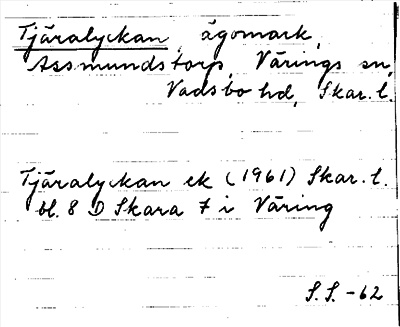 Tjäralyckan, ägomark,
Assmundstorp, Värings sn,
Vadsbo hd, Skar. l.
Tjäralyckan ek (1961) Skar. l.
bl. 8 D Skara 7 i Väring
S.S. -62